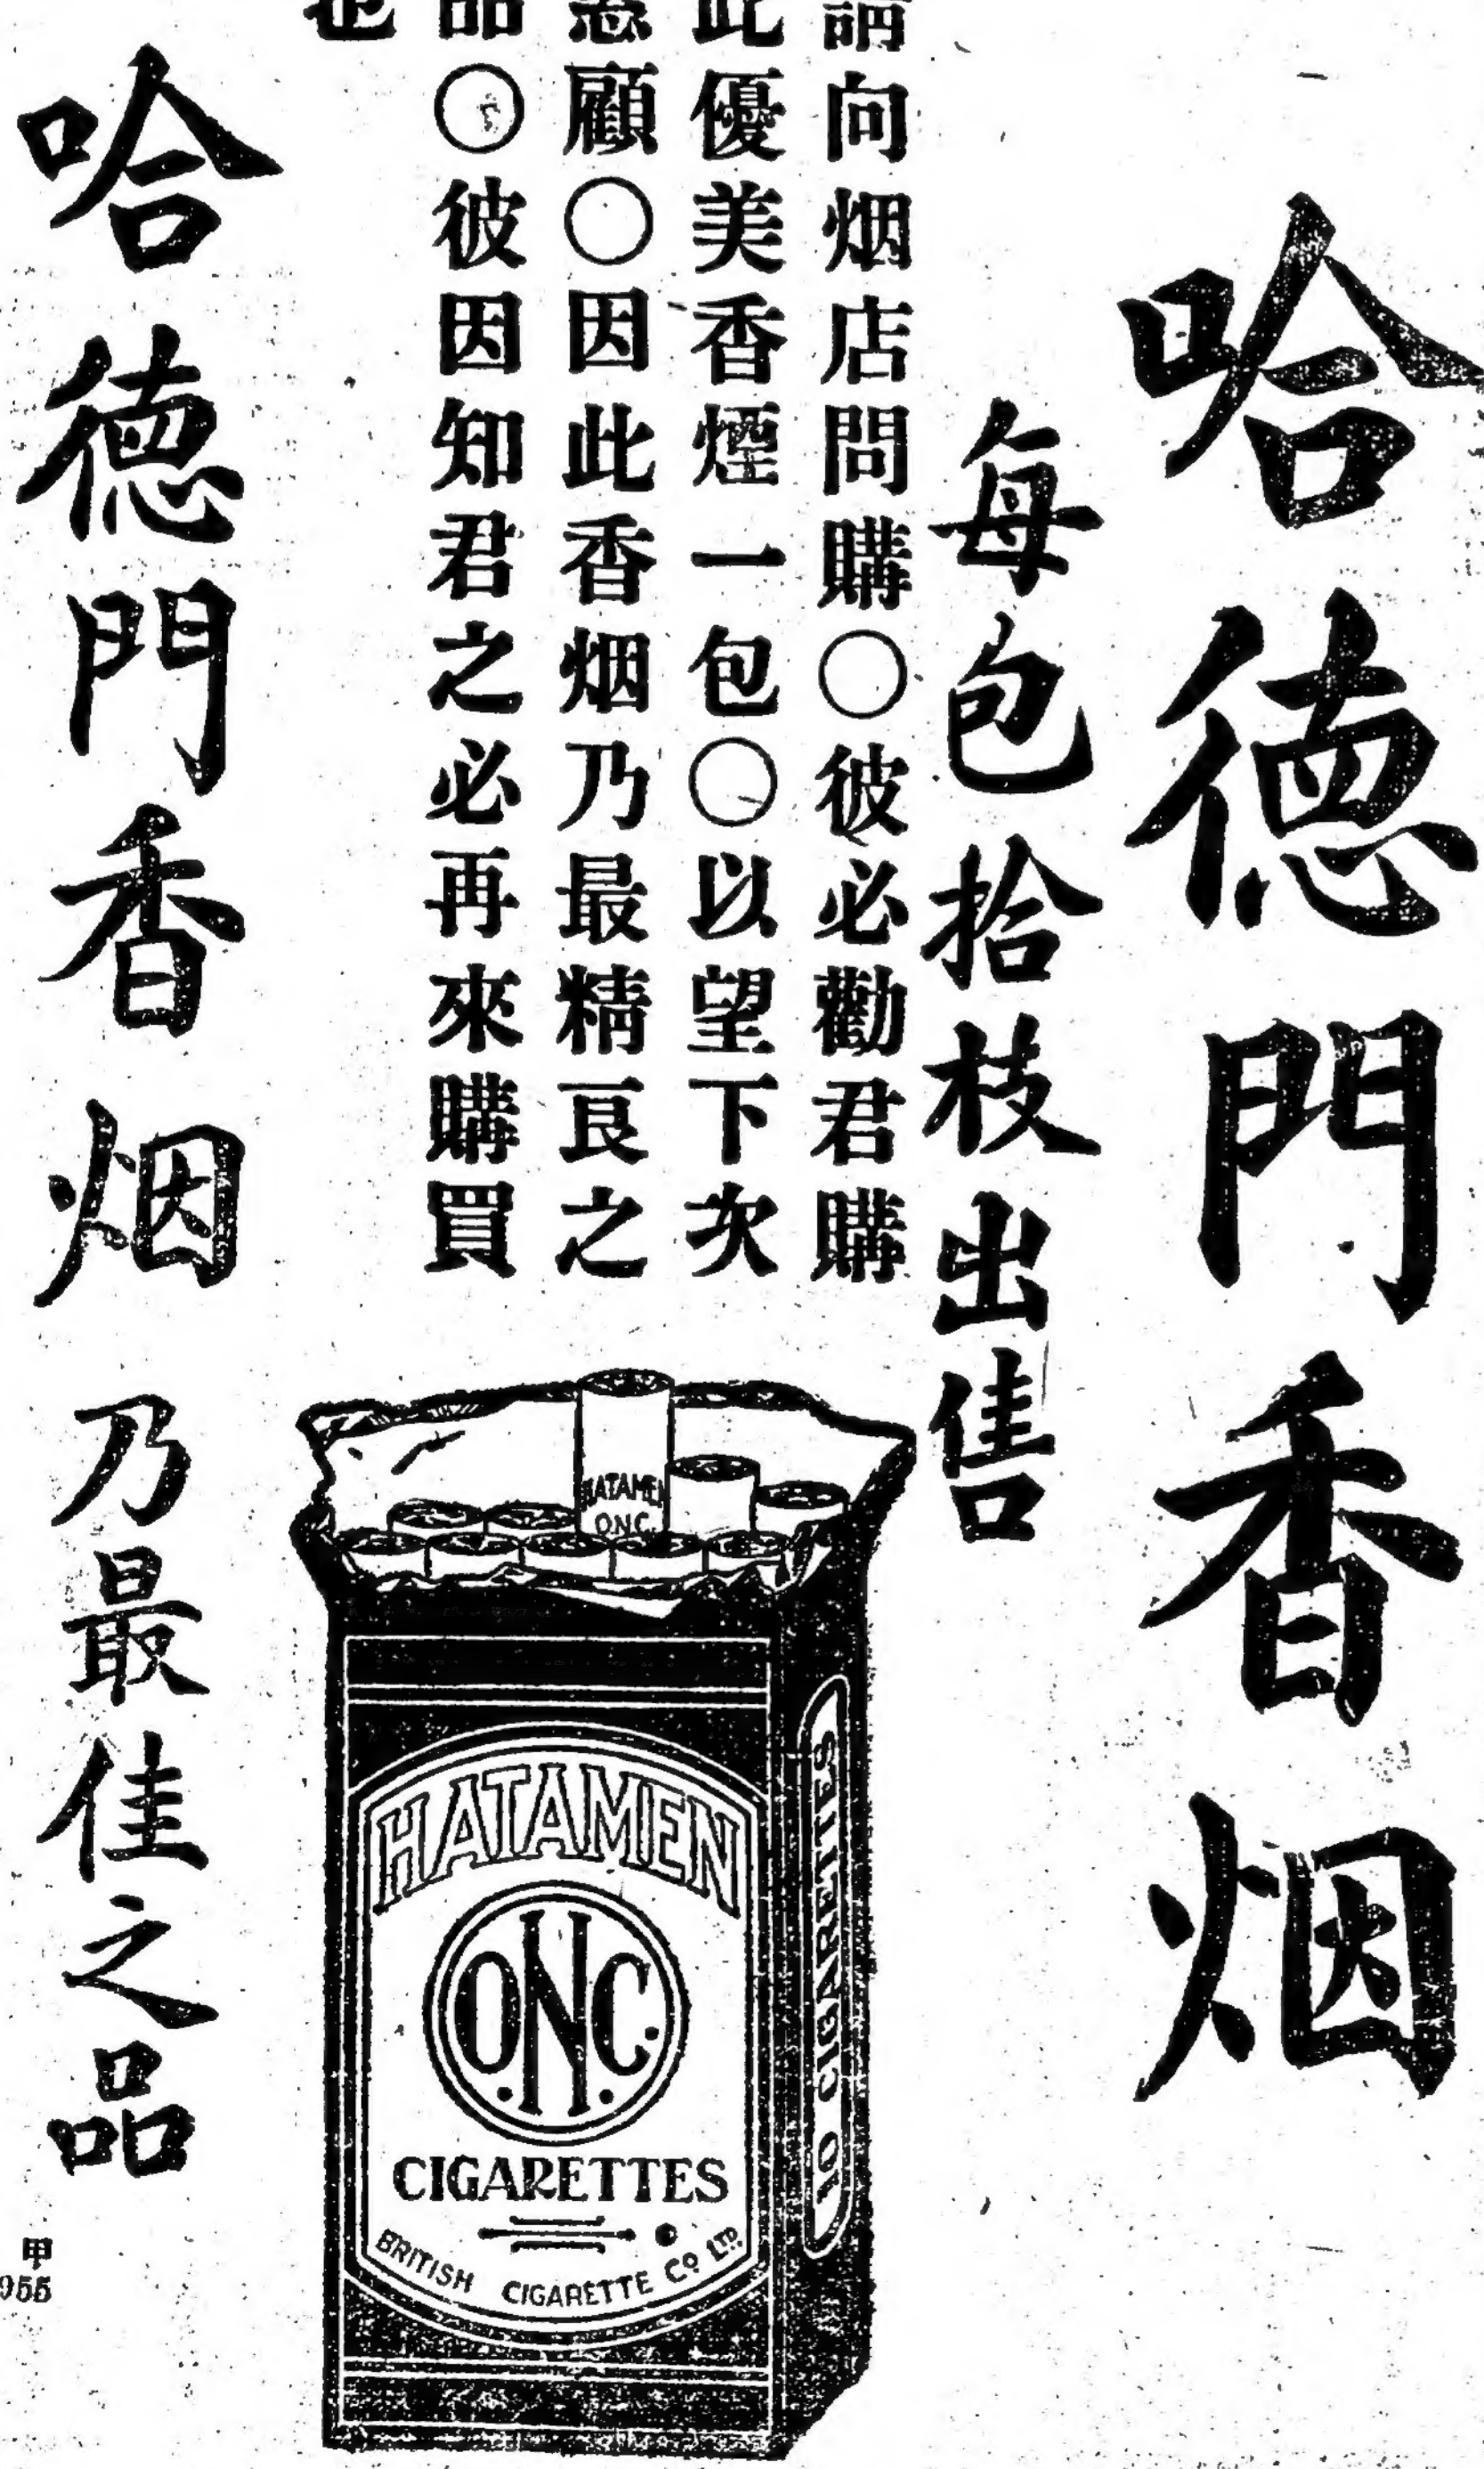 哈德門香烟
每包拾枝出售
請向烟店問購○彼必勸君購
此優美香煙一包○以望下次
惠顧○因此香烟乃最精良之
品○彼因知君之必再來購買
也
哈德門香烟乃最佳之品
HATAMEN
O.N.C.
HATAMEN
O.N.C.
CIGARETTES
BRITISH CIGARETTE CO LTD.
10 CIGARETTES
甲
955